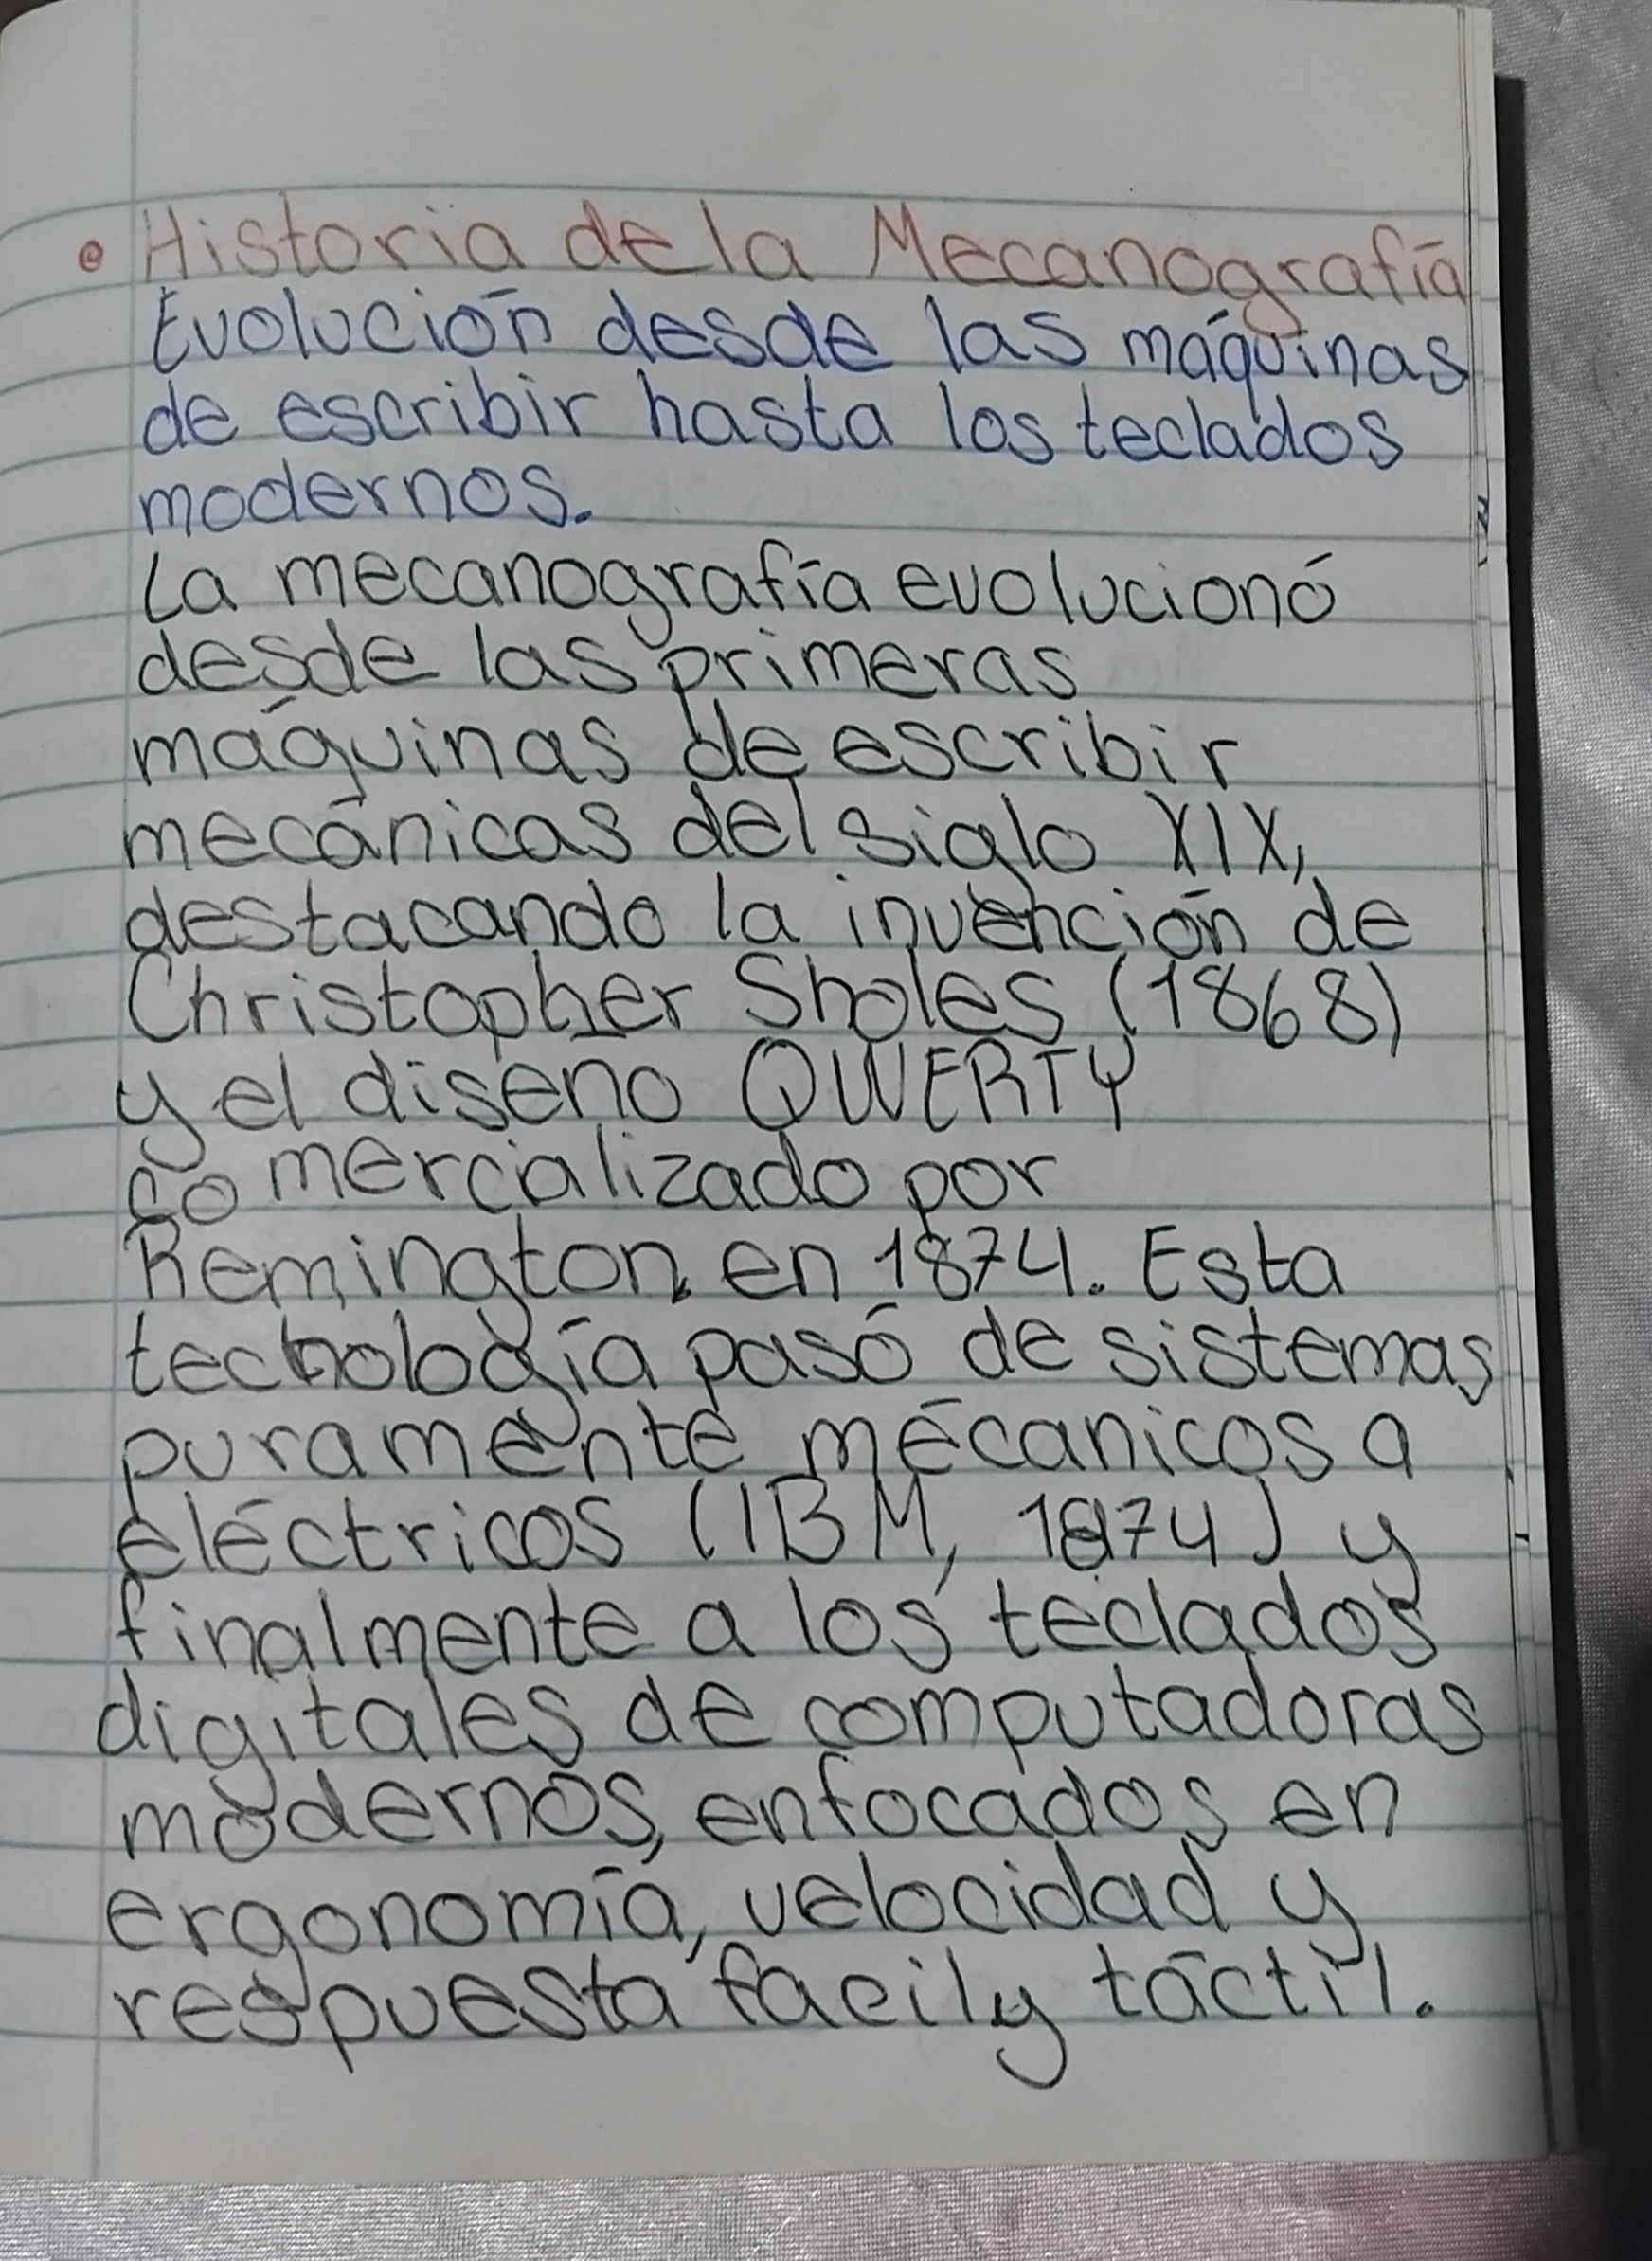 • Historia de la Mecanografía
Evolución desde las máquinas
de escribir hasta los teclados
modernos.
La mecanografía evolucionó
desde las primeras
máquinas de escribir
mecánicas del siglo XIX,
destacando la invención de
Christopher Sholes (1868)
y el diseno QWERTY
comercializado por
Remington en 1874. Esta
tecnología pasó de sistemas
puramente mécanicos a
eléctricos (IBM, 1874) y
finalmente a los teclados
digitales de computadoras
modernos, enfocados en
ergonomía, velocidad y
respuesta facil y táctil.